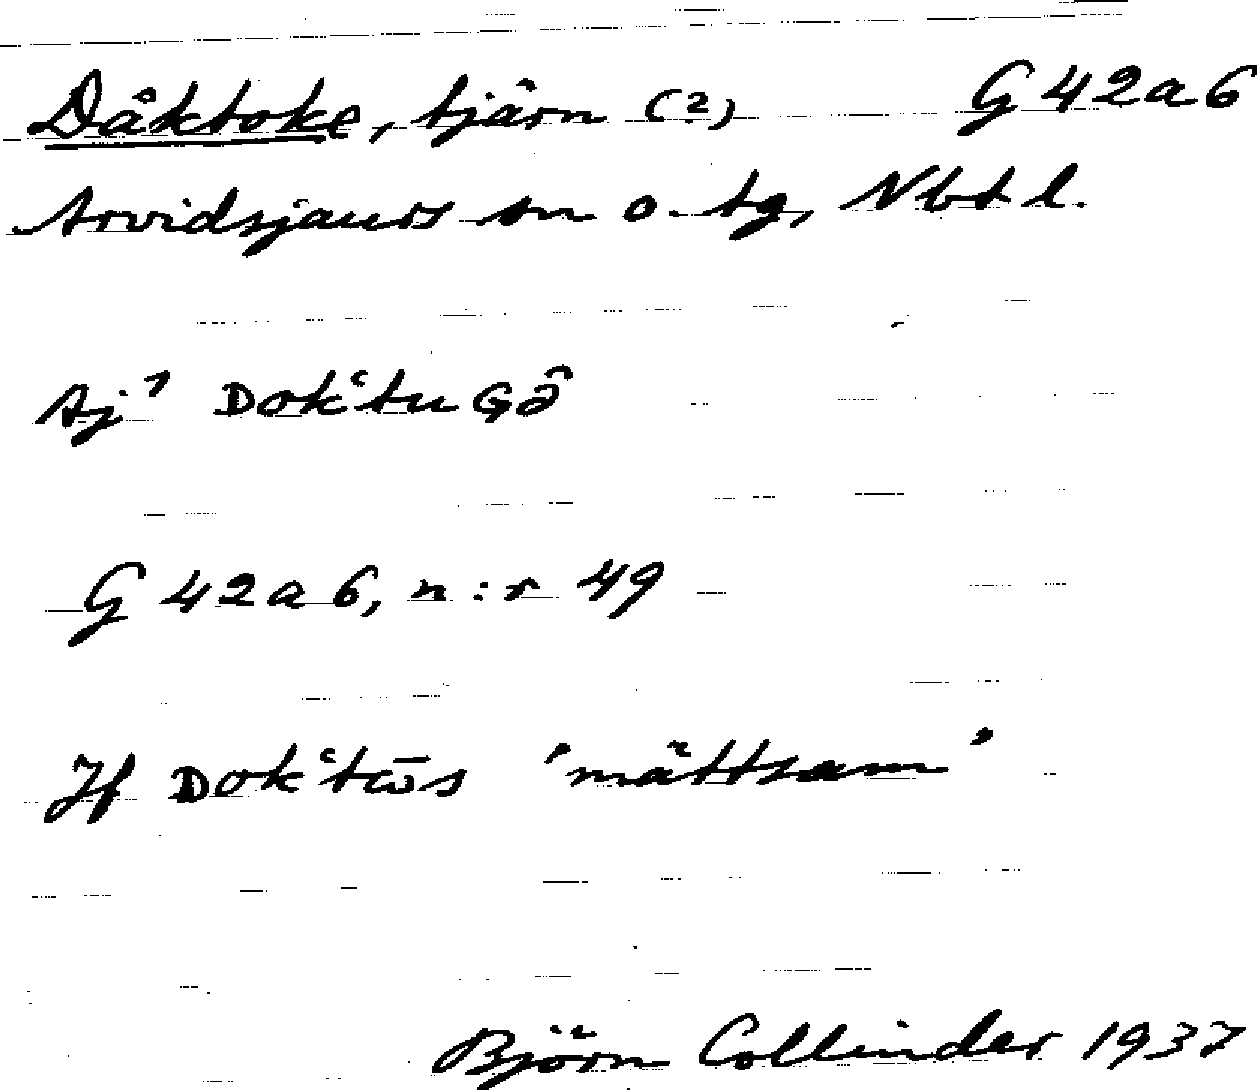 Dåktoke, tjärn (2) G 42a6
Arvidsjaurs sn o. tg, Nbtl.
Aj¹ Dokʿtu Gə̑
G 42a6, n:r 49
Jf Dokʿtɷ̄s 'måttsam'
Björn Collinder 1937